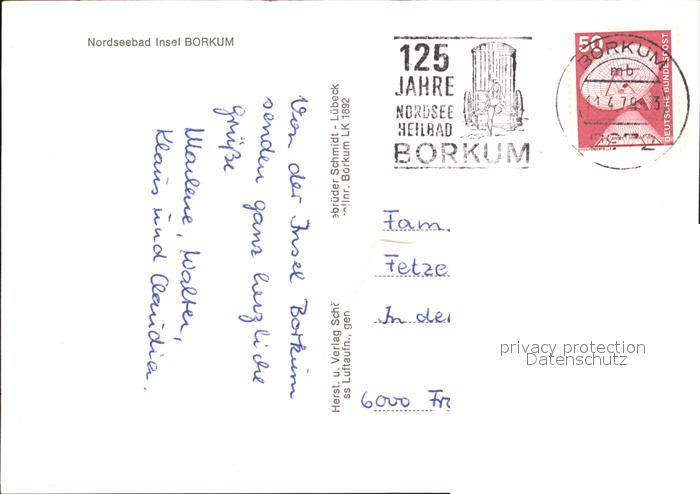 Nordseebad Insel BORKUM
Von der Insel Borkum
senden ganz herzliche
Grüße
Marlene, Walter,
Klaus und Claudia.
ebrüder Schmidt - Lübeck
ellnr. Borkum LK 1892
Herst. u. Verlag Schö
ss Luftaufn., gen
125
JAHRE
NORDSEE
HEILBAD
BORKUM
BORKUM
mb
1.4.79
2972
50
DEUTSCHE BUNDESPOST
Fam.
Fetze
In der
6000 Fr
privacy protection
Datenschutz